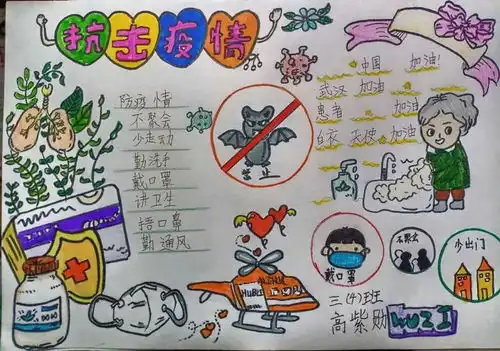 抗击疫情
防疫情
不聚会
少走动
勤洗手
戴口罩
讲卫生
捂口鼻
勤通风
禁止
中国 加油!
武汉 加油
患者 加油
白衣 天使 加油
戴口罩
不聚会
少出门
HUBEI
三(4)班
高紫